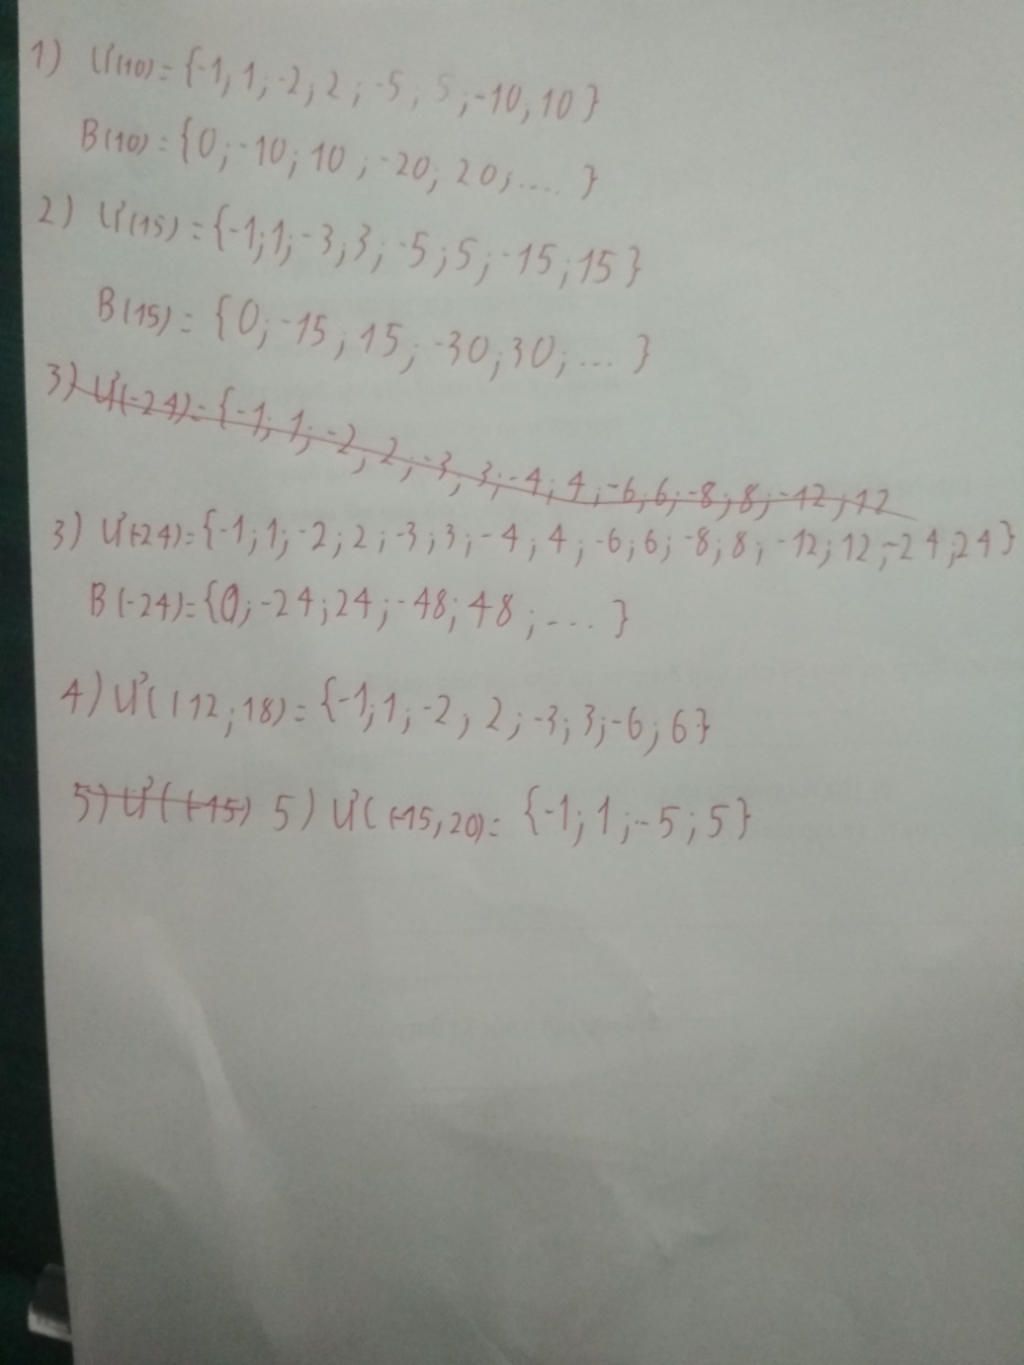 1) Ư(10) = {-1, 1; -2; 2; -5; 5; -10, 10}
B(10) = {0; -10; 10; -20; 20; .... }
2) Ư(15) = {-1; 1; -3; 3; -5; 5; -15; 15}
B(15) = {0; -15; 15; -30; 30; ... }
3) Ư(-24) = {-1; 1; -2; 2; -3; 3; -4; 4; -6; 6; -8; 8; -12; 12
3) Ư(-24) = {-1; 1; -2; 2; -3; 3; -4; 4; -6; 6; -8; 8; -12; 12; -24; 24}
B(-24) = {0; -24; 24; -48; 48; ... }
4) Ư(12; 18) = {-1; 1; -2; 2; -3; 3; -6; 6}
5) Ư(-15) 5) Ư(-15, 20) = {-1; 1; -5; 5}